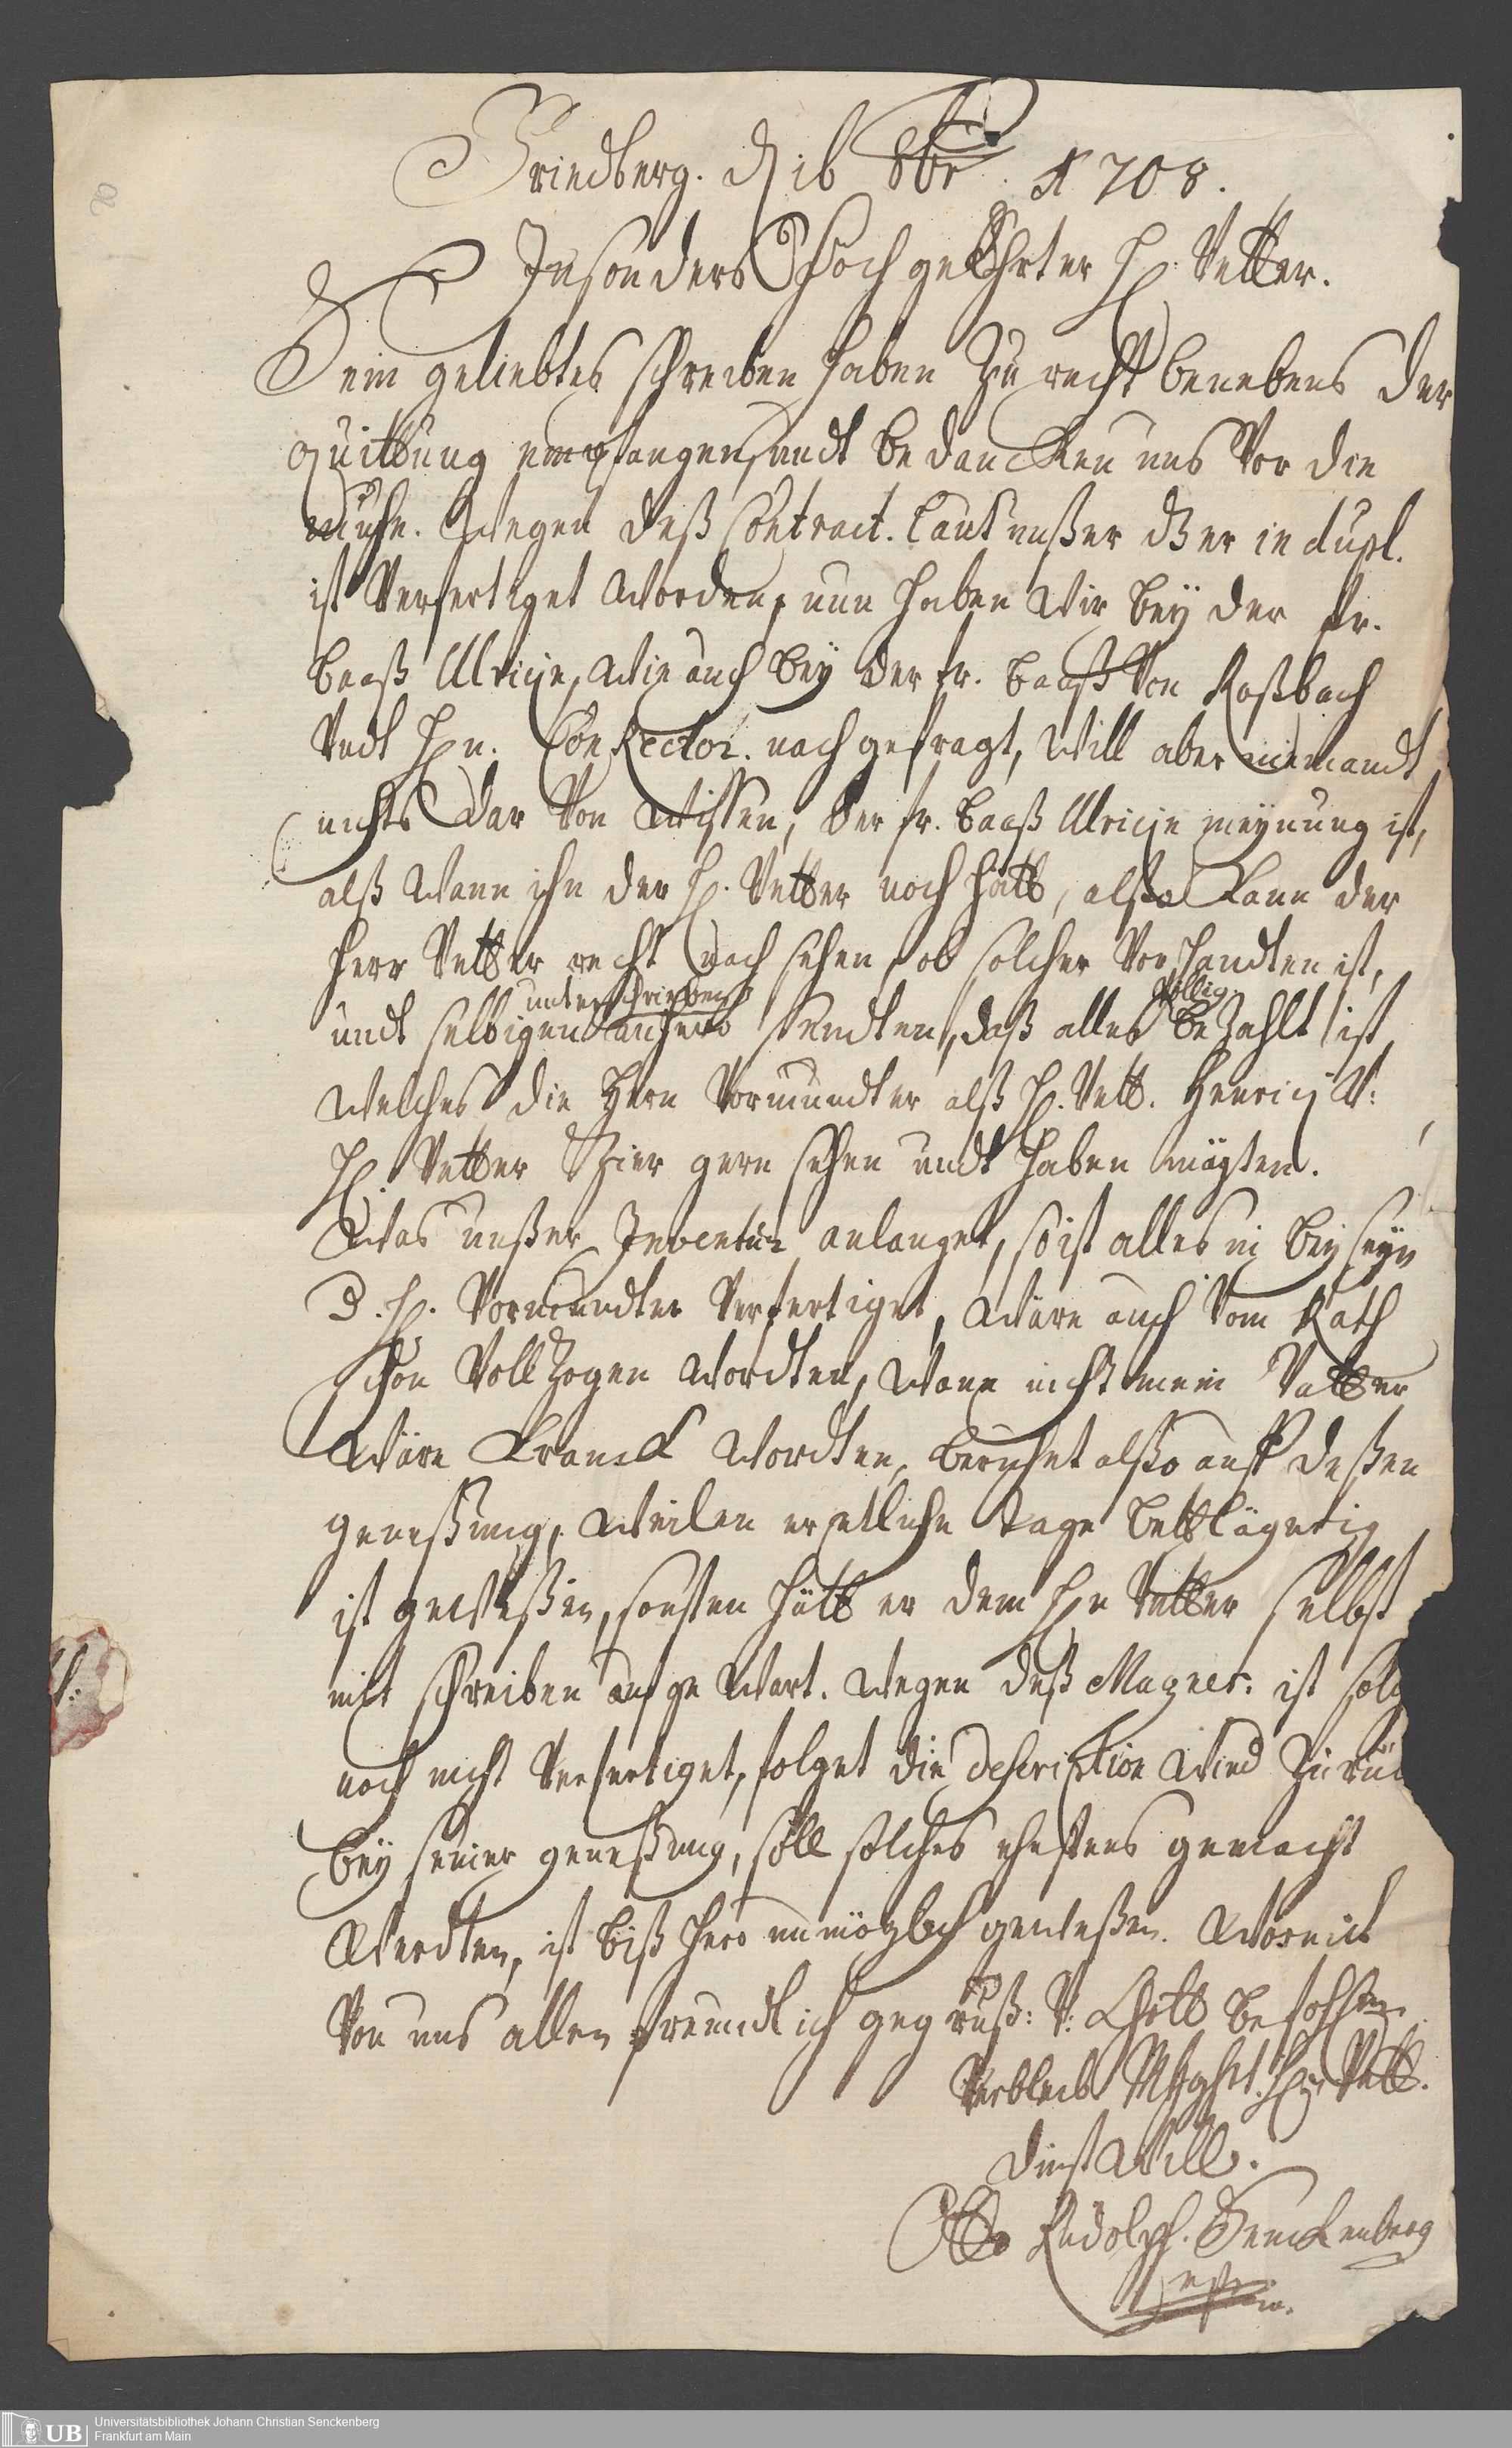 Friedberg. d 16 8br. A 1708.
Insonders Hoch geEhrter H. Vetter.
Sein geliebtes schreiben haben Zu recht benebens der
quittung empfangen, undt bedancken uns Vor die
mühe. Wegen deß Contract. laut unßer in dupl.
ist Verfertiget Worden, nun haben Wir bey der fr.
baaß Ulricje, Wie auch bey der fr. baaß Von Roßbach
Undt Hn. ConRector. nach gefragt, Will aber niemandt
nichts dar Von Wissen, der fr. baaß Ulricje meynung ist,
alß Wann ihn der H. Vetter noch hätt, alßo kann der
Herr Vetter recht nach sehen, ob solcher Vorhandten ist,
unterschrieben völlig
undt selbigen anhero sendten, daß alles beZahlt ist
Welches die Hern Vormundter alß H. Vett. Henricj V:
H. Vetter hier gern sehen undt haben mögten.
Was unßer Inventur anlanget, so ist alles in bey seyn
d. H. Vormundter Verfertiget, Wäre auch Vom Rath
schon VollZogen Wordten, Wann nicht mein Vatter
Wäre kranck Wordten, beruhet alßo auff deßen
geneßung, Weilen er etliche tage bettlägerig
ist geweßen, sonsten hätt er dem Hn Vetter selbst
mit schreiben auffgeWart. Wegen deß Magnet: ist sol
noch nicht Verfertiget, folget die description Wied Zurü
bey seiner geneßung, soll solches ehestens gemacht
Werdten, ist biß hero unmöglich geweßen. Wormit
Von uns allen freundtlich gegrüß: V: Gott befohlen.
Verbleib Mhghrt. Hn Vett.
dinstWill.
Otto Rudolph. Senckenberg